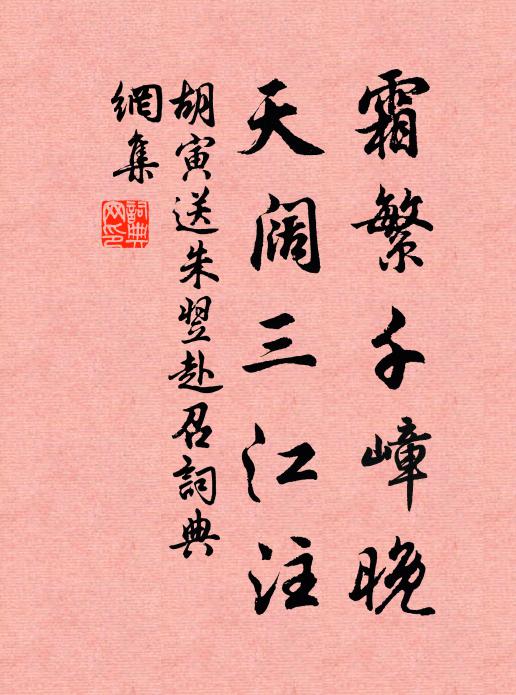 霜繁千嶂晚
天阔三江注
胡寅送朱翌赴召詞典
網集
詞典
网印